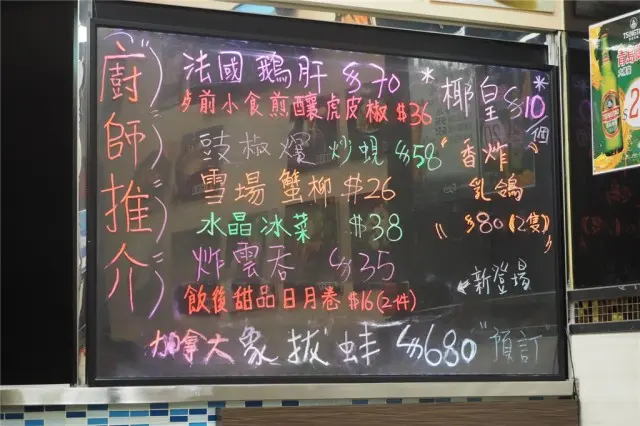 廚師推介
法國鵝肝 $70
夕前小食煎釀虎皮椒 $36
豉椒爆炒蜆 $58
雪場蟹柳 $26
水晶冰菜 $38
炸雲吞 $35
飲後甜品日月卷 $16(2件)
加拿大象拔蚌 $680 "預訂"
*椰皇* $10個
"香炸乳鴿
$80(2隻)"
←新登場
TSINGTAO